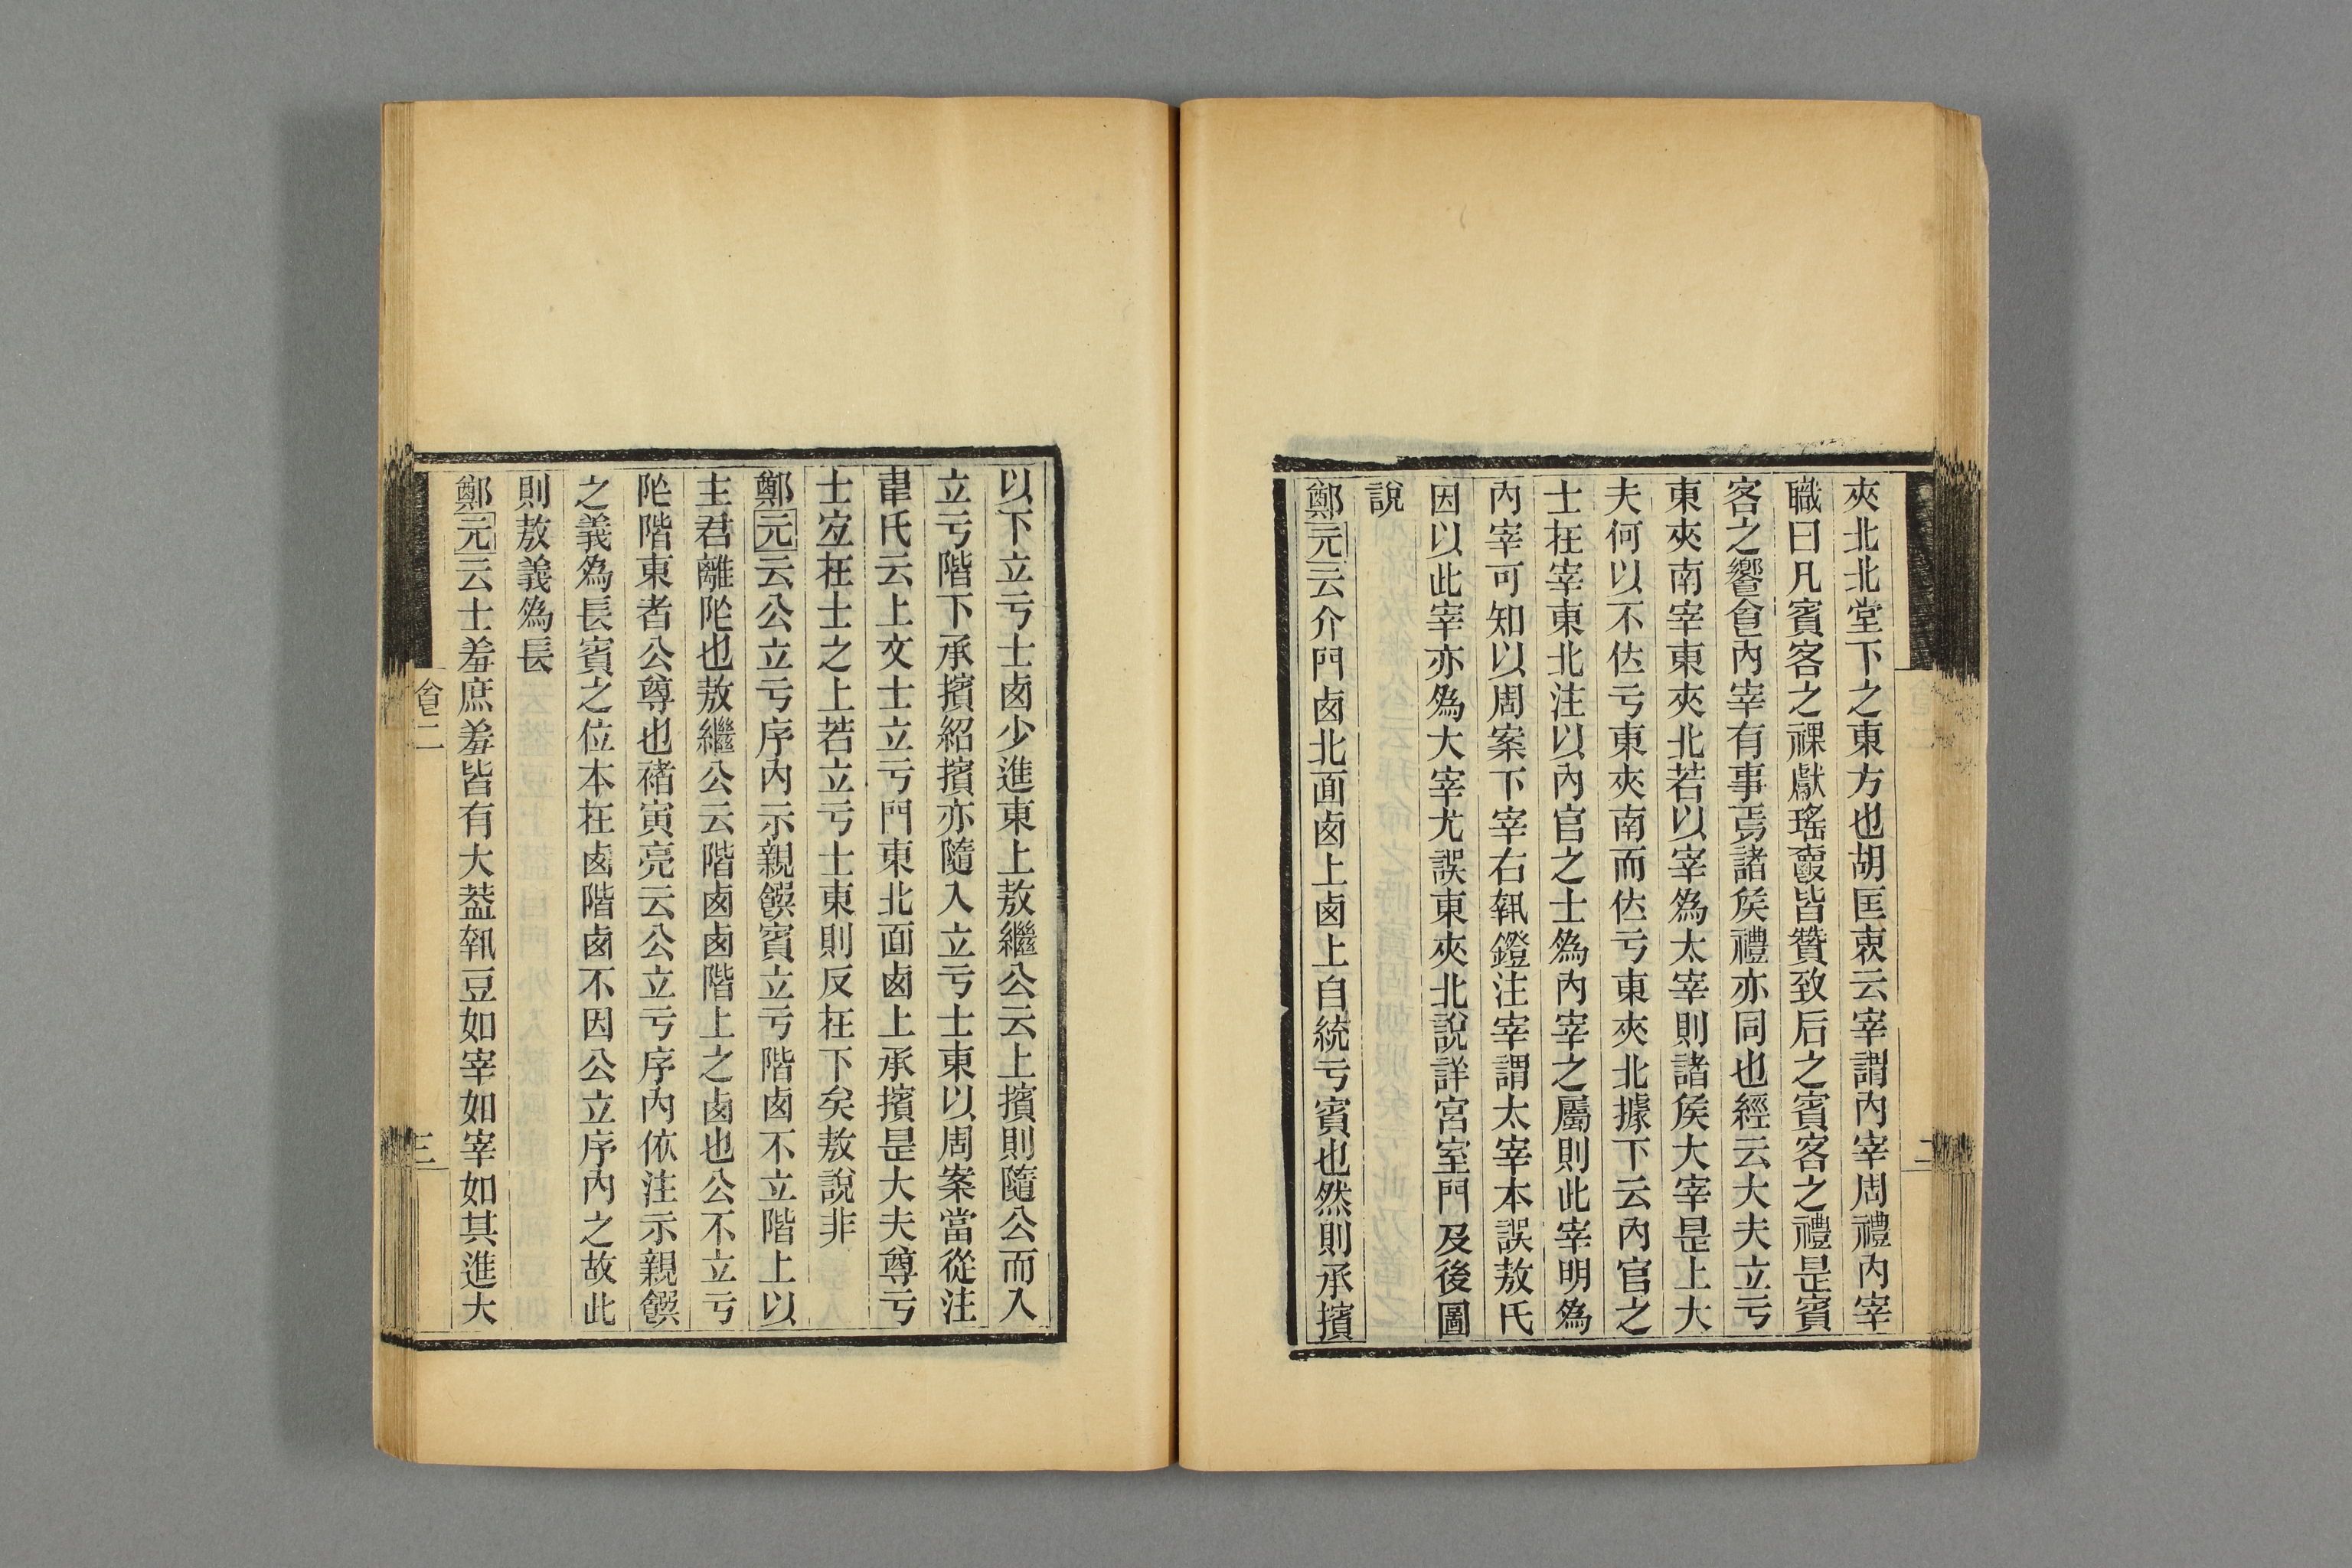 夾北北堂下之東方也胡匡衷云宰謂內宰周禮內宰
職曰凡賓客之祼獻瑤爵皆贊致后之賓客之禮是賓
客之饗食內宰有事焉諸矦禮亦同也經云大夫立亏
東夾南宰東夾北若以宰為太宰則諸矦大宰是上大
夫何以不位亏東夾南而位亏東夾北據下云內官之
士在宰東北注以內官之士為內宰之屬則此宰明為
內宰可知以周案下宰右執鐙注宰謂太宰本誤敖氏
因以此宰亦為大宰尤誤東夾北說詳宮室門及後圖
說
鄭元云介門卤北面卤上卤上自統亏賓也然則承擯
以下立亏士卤少進東上敖繼公云上擯則隨公而入
立亏階下承擯紹擯亦隨入立亏士東以周案當從注
韋氏云上文士立亏門東北面卤上承擯是大夫尊亏
士宐在士之上若立亏士東則反在下矣敖說非
鄭元云公立亏序內示親饌賓立亏階卤不立階上以
主君離阼也敖繼公云階卤卤階上之卤也公不立亏
阼階東者公尊也禇寅亮云公立亏序內依注示親饌
之義為長賓之位本在卤階卤不因公立序內之故此
則敖義為長
鄭元云士羞庶羞皆有大葢執豆如宰如宰如其進大
食二
三